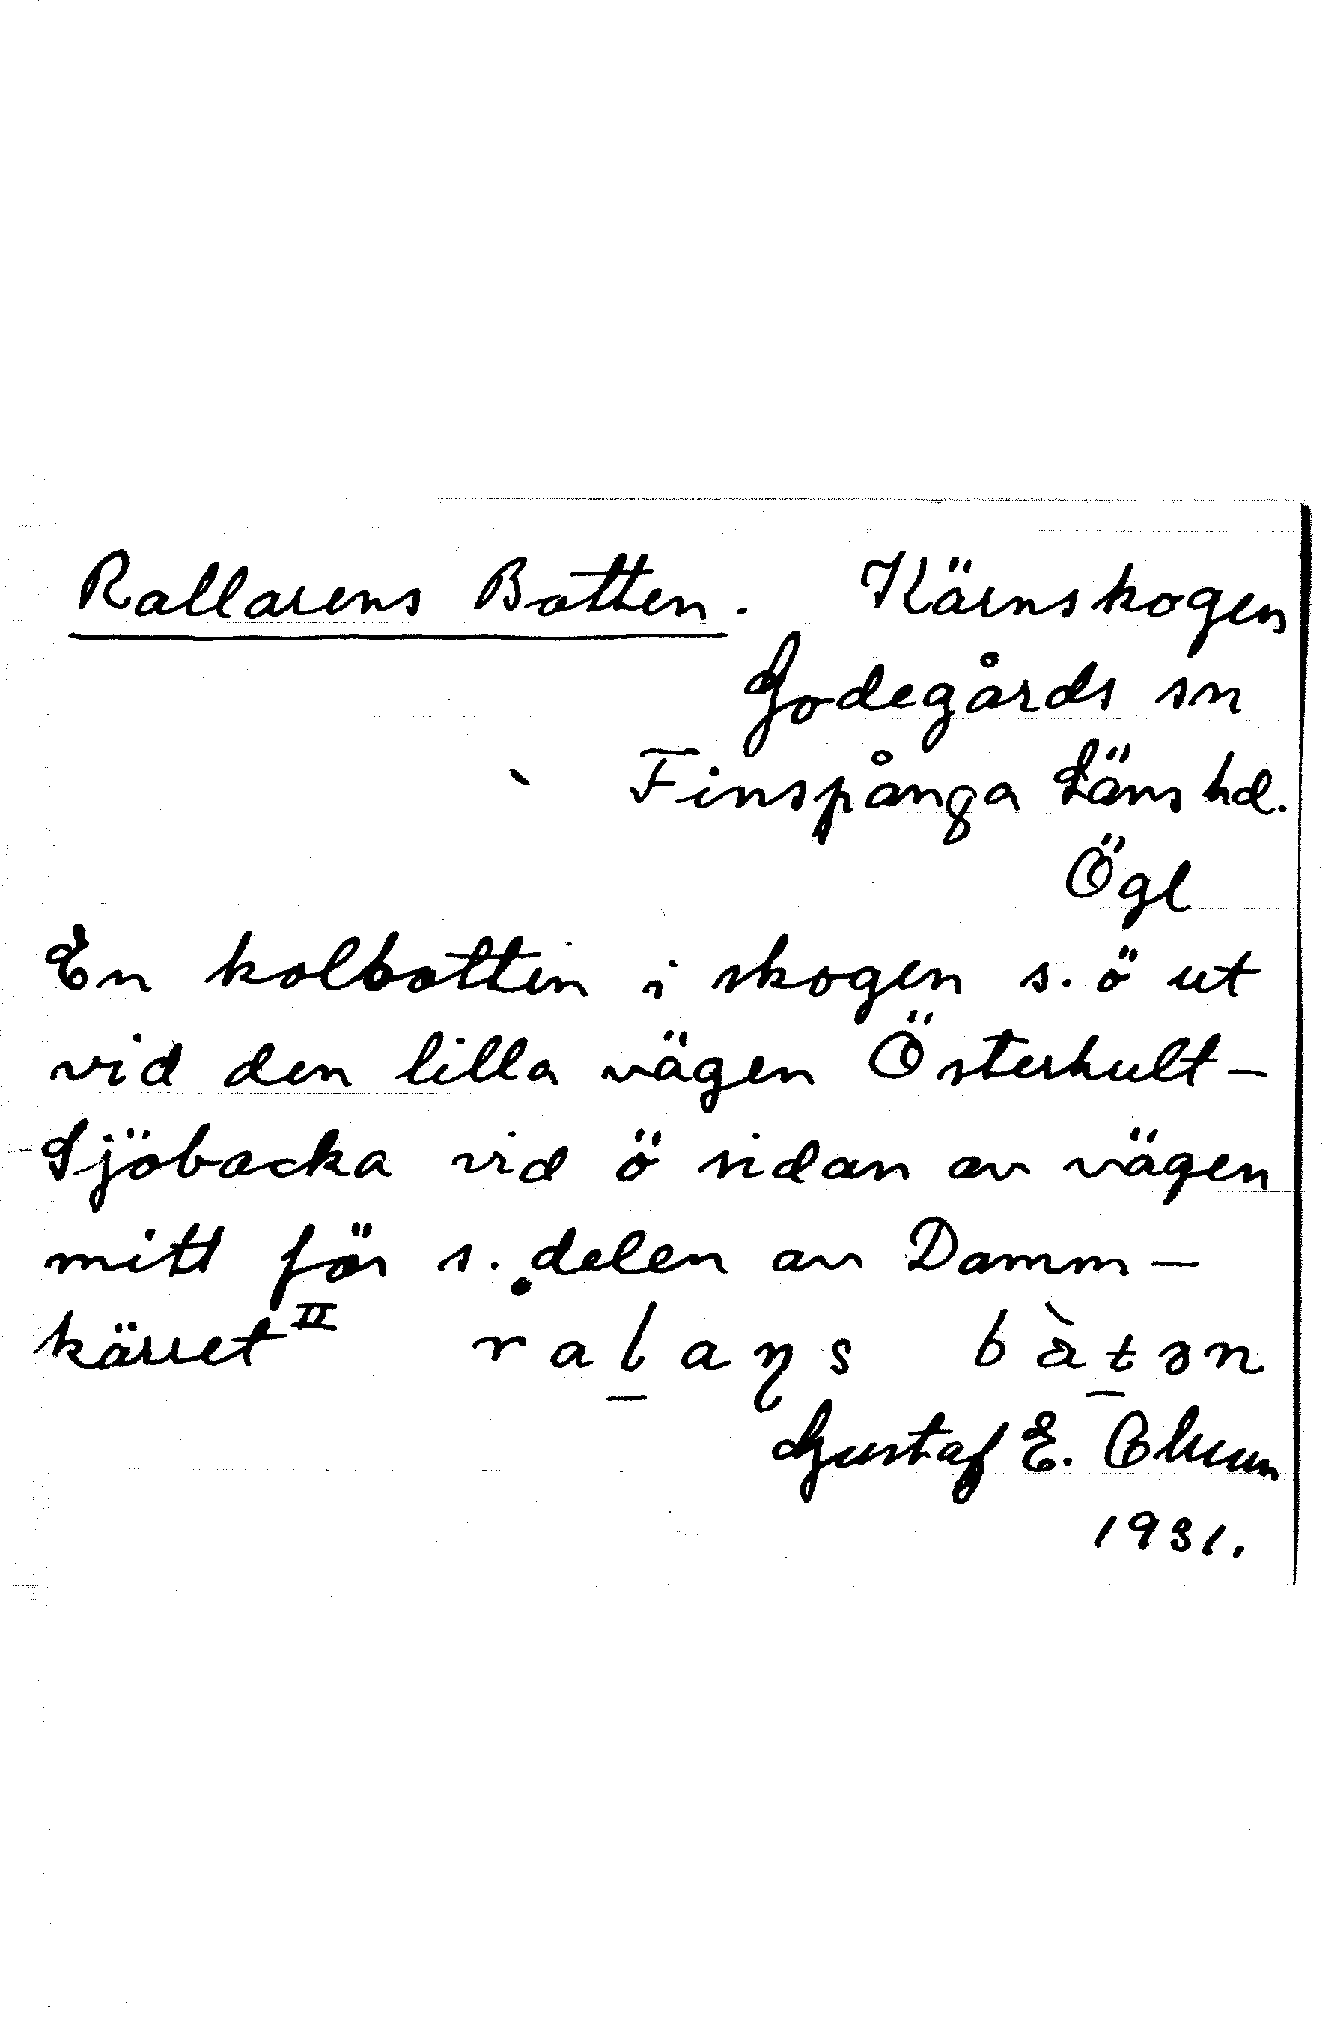 Rallarens Botten. Kärnskogen
Godegårds sn
Finspånga Läns hd.
Ögl
En kolbotten i skogen s. ö ut
vid den lilla vägen Österhult -
Sjöbacka vid ö sidan av vägen
mitt för s. delen av Damm -
kärret II ralaṉs bàtən
Gustaf E.
1931.